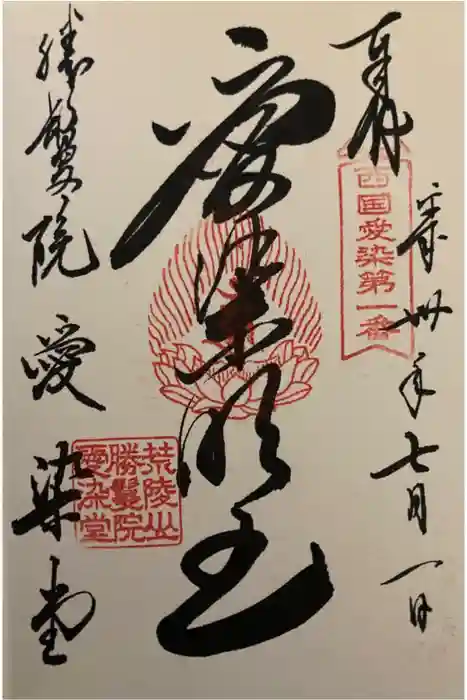 奉拝
西国愛染第一番
平成卅年七月一日
愛染明王
荒陵山
勝鬘院
愛染堂
勝鬘院愛染堂